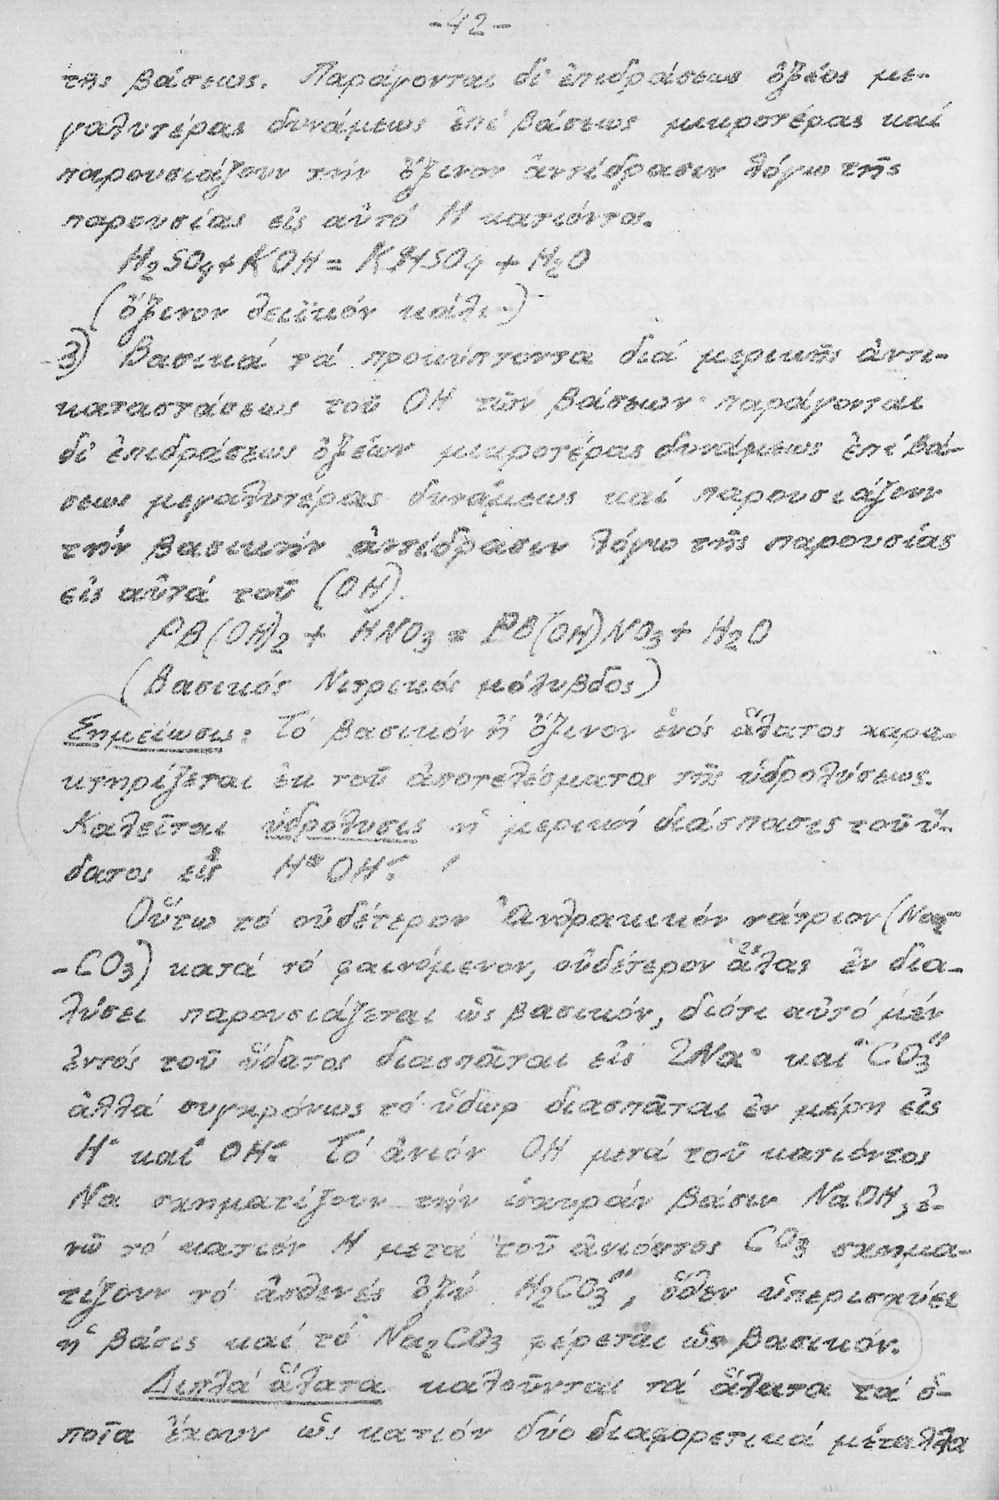 -42-
της βάσεως. Παράγονται δι' ἐπιδράσεως ὀξέος με-
γαλυτέρας δυνάμεως ἐπί βάσεως μικροτέρας καί
παρουσιάζουν τήν ὄξινον ἀντίδρασιν λόγῳ τῆς
παρουσίας εἰς αὐτό H κατιόντα.
H₂SO₄+KOH = KHSO₄ + H₂O
(ὄξινον θειϊκόν κάλι.)
3) Βασικά τά προκύπτοντα διά μερικῆς ἀντι-
καταστάσεως τοῦ OH τῶν βάσεων· παράγονται
δι' ἐπιδράσεως ὀξέων μικροτέρας δυνάμεως ἐπί βά-
σεως μεγαλυτέρας δυνάμεως καί παρουσιάζουν
τήν βασικήν ἀντίδρασιν λόγῳ τῆς παρουσίας
εἰς αὐτά τοῦ (OH).
PB(OH)₂ + HNO₃ = PB(OH)NO₃ + H₂O
(Βασικός Νιτρικός μόλυβδος)
Σημείωσις: Τό βασικόν ἤ ὄξινον ἑνός ἅλατος χαρα-
κτηρίζεται ἐκ τοῦ ἀποτελέσματος τῆς ὑδρολύσεως.
Καλεῖται ὑδρόλυσις ἡ μερική διάσπασις τοῦ ὕ-
δατος εἰς H⁺ OH⁻.
Οὕτω τό οὐδέτερον Ἀνθρακικόν νάτριον (Na₂-
-CO₃) κατά τό φαινόμενον, οὐδέτερον ἅλας ἐν δια-
λύσει παρουσιάζεται ὡς βασικόν, διότι αὐτό μέν
ἐντός τοῦ ὕδατος διασπᾶται εἰς 2Na· καί CO₃″
ἀλλά συγχρόνως τό ὕδωρ διασπᾶται ἐν μέρη εἰς
H· καί OH⁻. Τό ἀνιόν OH μετά τοῦ κατιόντος
Na σχηματίζουν τήν ἰσχυράν βάσιν NaOH, ἐ-
νῶ τό κατιόν H μετά τοῦ ἀνιόντος CO₃ σχημα-
τίζουν τό ἀσθενές ὀξύ H₂CO₃″, ὅθεν ὑπερισχύει
ἡ βάσις καί τό Na₂CO₃ φέρεται ὡς βασικόν.
Διπλά ἅλατα καλοῦνται τά ἅλατα τά ὁ-
ποῖα ἔχουν ὡς κατιόν δύο διαφορετικά μέταλλα